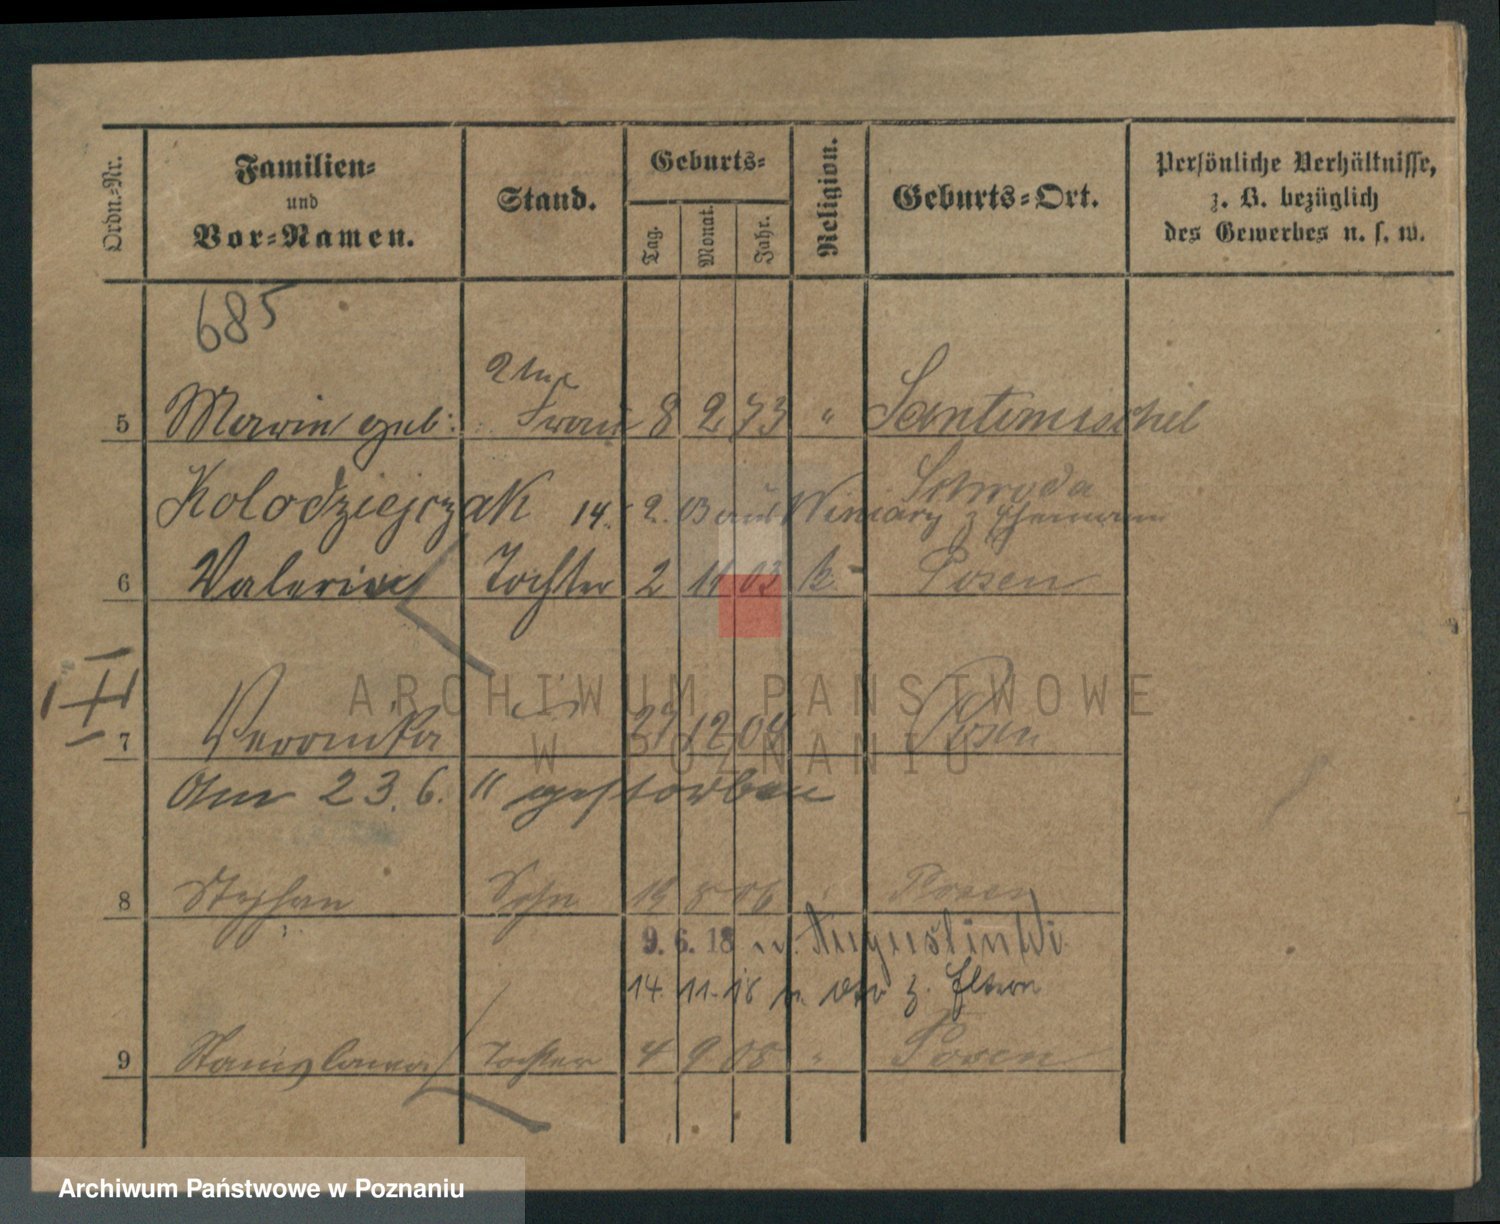 Ordn.-Nr.
Familien-
und
Vor-Namen.
Stand.
Geburts-
Tag.
Monat.
Jahr.
Religion.
Geburts-Ort.
Persönliche Verhältnisse,
z. B. bezüglich
des Gewerbes u. s. w.
685
5 Marie geb: Frau 8 2 73 " Santomischel
Schroda
Kolodziejczak 14. 2. 03 aus Winiary z Ehemann
6 Valeria Tochter 2 11 03 k Posen
7 Veronika 27 12 04 Posen
Am 23. 6. " gestorben
8 Stephan Sohn 19 8 06 " Posen
9. 6. 18 n. Augustinski
14. 11. 18 z. Eltern
9 Stanislawa Tochter 4 9 08 " Posen
ARCHIWUM PAŃSTWOWE
W POZNANIU
Archiwum Państwowe w Poznaniu